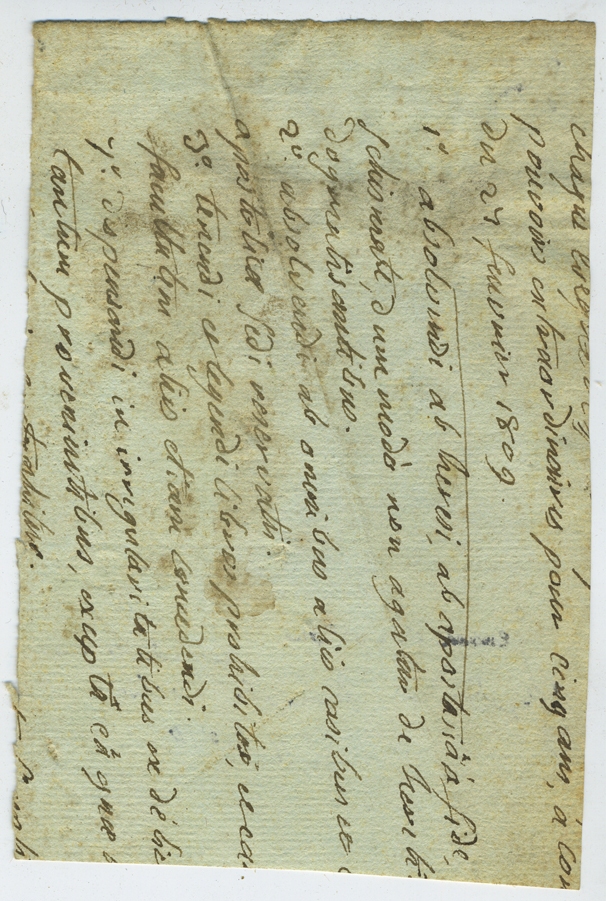 chaque
pouvoirs extraordinaires pour cinq ans, à com
du 27 fevrier 1809.
1º. absolvendi ab heresi, ab apostasiâ à fide,
schismate, dum modò non agatur de hereti
dogmatisantibus.
2º. absolvendi ab omnibus aliis casibus
apostolicæ sedi reservatis.
3º. tenendi et legendi libros prohibitos, ea
facultatem aliis etiam concedendi.
7º. dispensandi in irregularitatibus ex delic
tantum provenientibus, exceptâ eâ quæ